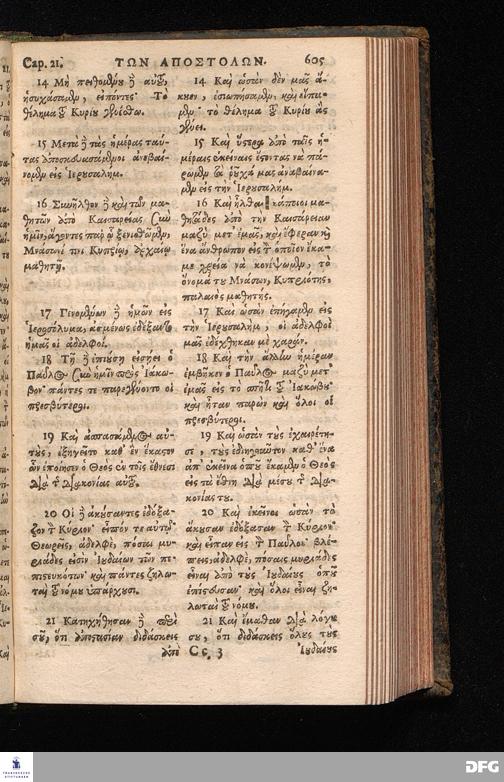 Cap. 21. ΤΩΝ ΑΠΟΣΤΟΛΩΝ. 605
14 Μὴ πειθομένου δὲ αὐτοῦ,
ἡσυχάσαμεν, εἰπόντες· Τὸ
θέλημα τοῦ Κυρίου γενέσθω.
15 Μετὰ δὲ τὰς ἡμέρας ταύ-
τας ἀποσκευασάμενοι ἀνεβαί-
νομεν εἰς Ἱερουσαλήμ.
16 Συνῆλθον δὲ καὶ τῶν μα-
θητῶν ἀπὸ Καισαρείας σὺν
ἡμῖν, ἄγοντες παρ' ᾧ ξενισθῶμεν,
Μνάσωνί τινι Κυπρίῳ, ἀρχαίῳ
μαθητῇ.
17 Γενομένων δὲ ἡμῶν εἰς
Ἱεροσόλυμα, ἀσμένως ἐδέξαντο
ἡμᾶς οἱ ἀδελφοί.
18 Τῇ δὲ ἐπιούσῃ εἰσῄει ὁ
Παῦλος σὺν ἡμῖν πρὸς Ἰάκω-
βον· πάντες τε παρεγένοντο οἱ
πρεσβύτεροι.
19 Καὶ ἀσπασάμενος αὐ-
τοὺς, ἐξηγεῖτο καθ' ἓν ἕκαστον
ὧν ἐποίησεν ὁ Θεὸς ἐν τοῖς ἔθνεσι
διὰ τῆς διακονίας αὐτοῦ.
20 Οἱ δὲ ἀκούσαντες ἐδόξα-
ζον τὸν Κύριον· εἶπόν τε αὐτῷ·
Θεωρεῖς, ἀδελφὲ, πόσαι μυ-
ριάδες εἰσὶν Ἰουδαίων τῶν πε-
πιστευκότων· καὶ πάντες ζηλω-
ταὶ τοῦ νόμου ὑπάρχουσι.
21 Κατηχήθησαν δὲ περὶ
σοῦ, ὅτι ἀποστασίαν διδάσκεις
ἀπὸ
14 Καὶ ὡσὰν δὲν μᾶς ἄ-
κουεν, ἐσιωπήσαμεν, καὶ εἴπα-
μεν· τὸ θέλημα τοῦ Κυρίου ἂς
γένει.
15 Καὶ ὕστερα ἀπὸ ταῖς ἡ-
μέραις ἐκείναις ἔστοντας νὰ πά-
ρωμεν τὰ ῥοῦχά μας ἀναβαίνα-
μεν εἰς τὴν Ἱερουσαλήμ.
16 Καὶ ἦλθαν κάποιοι μα-
θητάδες ἀπὸ τὴν Καισάρειαν
μαζὺ μετ' ἐμᾶς, καὶ ἔφεραν καὶ
ἕνα ἄνθρωπον εἰς τὸν ὁποῖον ἔκα-
με χρεία νὰ κονέψωμεν, τὸ
ὄνομά του Μνάσων, Κυπριώτης,
παλαιὸς μαθητής.
17 Καὶ ὡσὰν ἐπήγαμεν εἰς
τὴν Ἱερουσαλήμ, οἱ ἀδελφοὶ
μᾶς ἐδέχθηκαν μὲ χαράν.
18 Καὶ τὴν ἄλλην ἡμέραν
ἐμβῆκεν ὁ Παῦλος μαζὺ μετ'
ἐμᾶς εἰς τὸ σπῆτι τοῦ Ἰακώβου·
καὶ ἦταν παρὼν καὶ ὅλοι οἱ
πρεσβύτεροι.
19 Καὶ ὡσὰν τοὺς ἐχαιρέτη-
σε, τοὺς ἐδιηγοῦνταν καθ' ἕνα
ἀπ' ἐκεῖνα ὁποῦ ἔκαμεν ὁ Θεὸς
εἰς τὰ ἔθνη διὰ μέσου τῆς δια-
κονίας του.
20 Καὶ ἐκεῖνοι ὡσὰν τὸ
ἄκουσαν ἐδόξασαν τὸν Κύριον·
καὶ εἶπαν εἰς τὸν Παῦλον· βλέ-
πεις, ἀδελφὲ, πόσαις μυριάδες
εἶναι ἀπὸ τοὺς Ἰουδαίους ὁποῦ
ἐπίστευσαν· καὶ ὅλοι εἶναι ζη-
λωταὶ τοῦ νόμου.
21 Καὶ ἔμαθαν διὰ λόγου
σου, ὅτι διδάσκεις ὅλους τοὺς
Cc 3 Ἰουδαίους
FRANCKESCHE
STIFTUNGEN
DFG